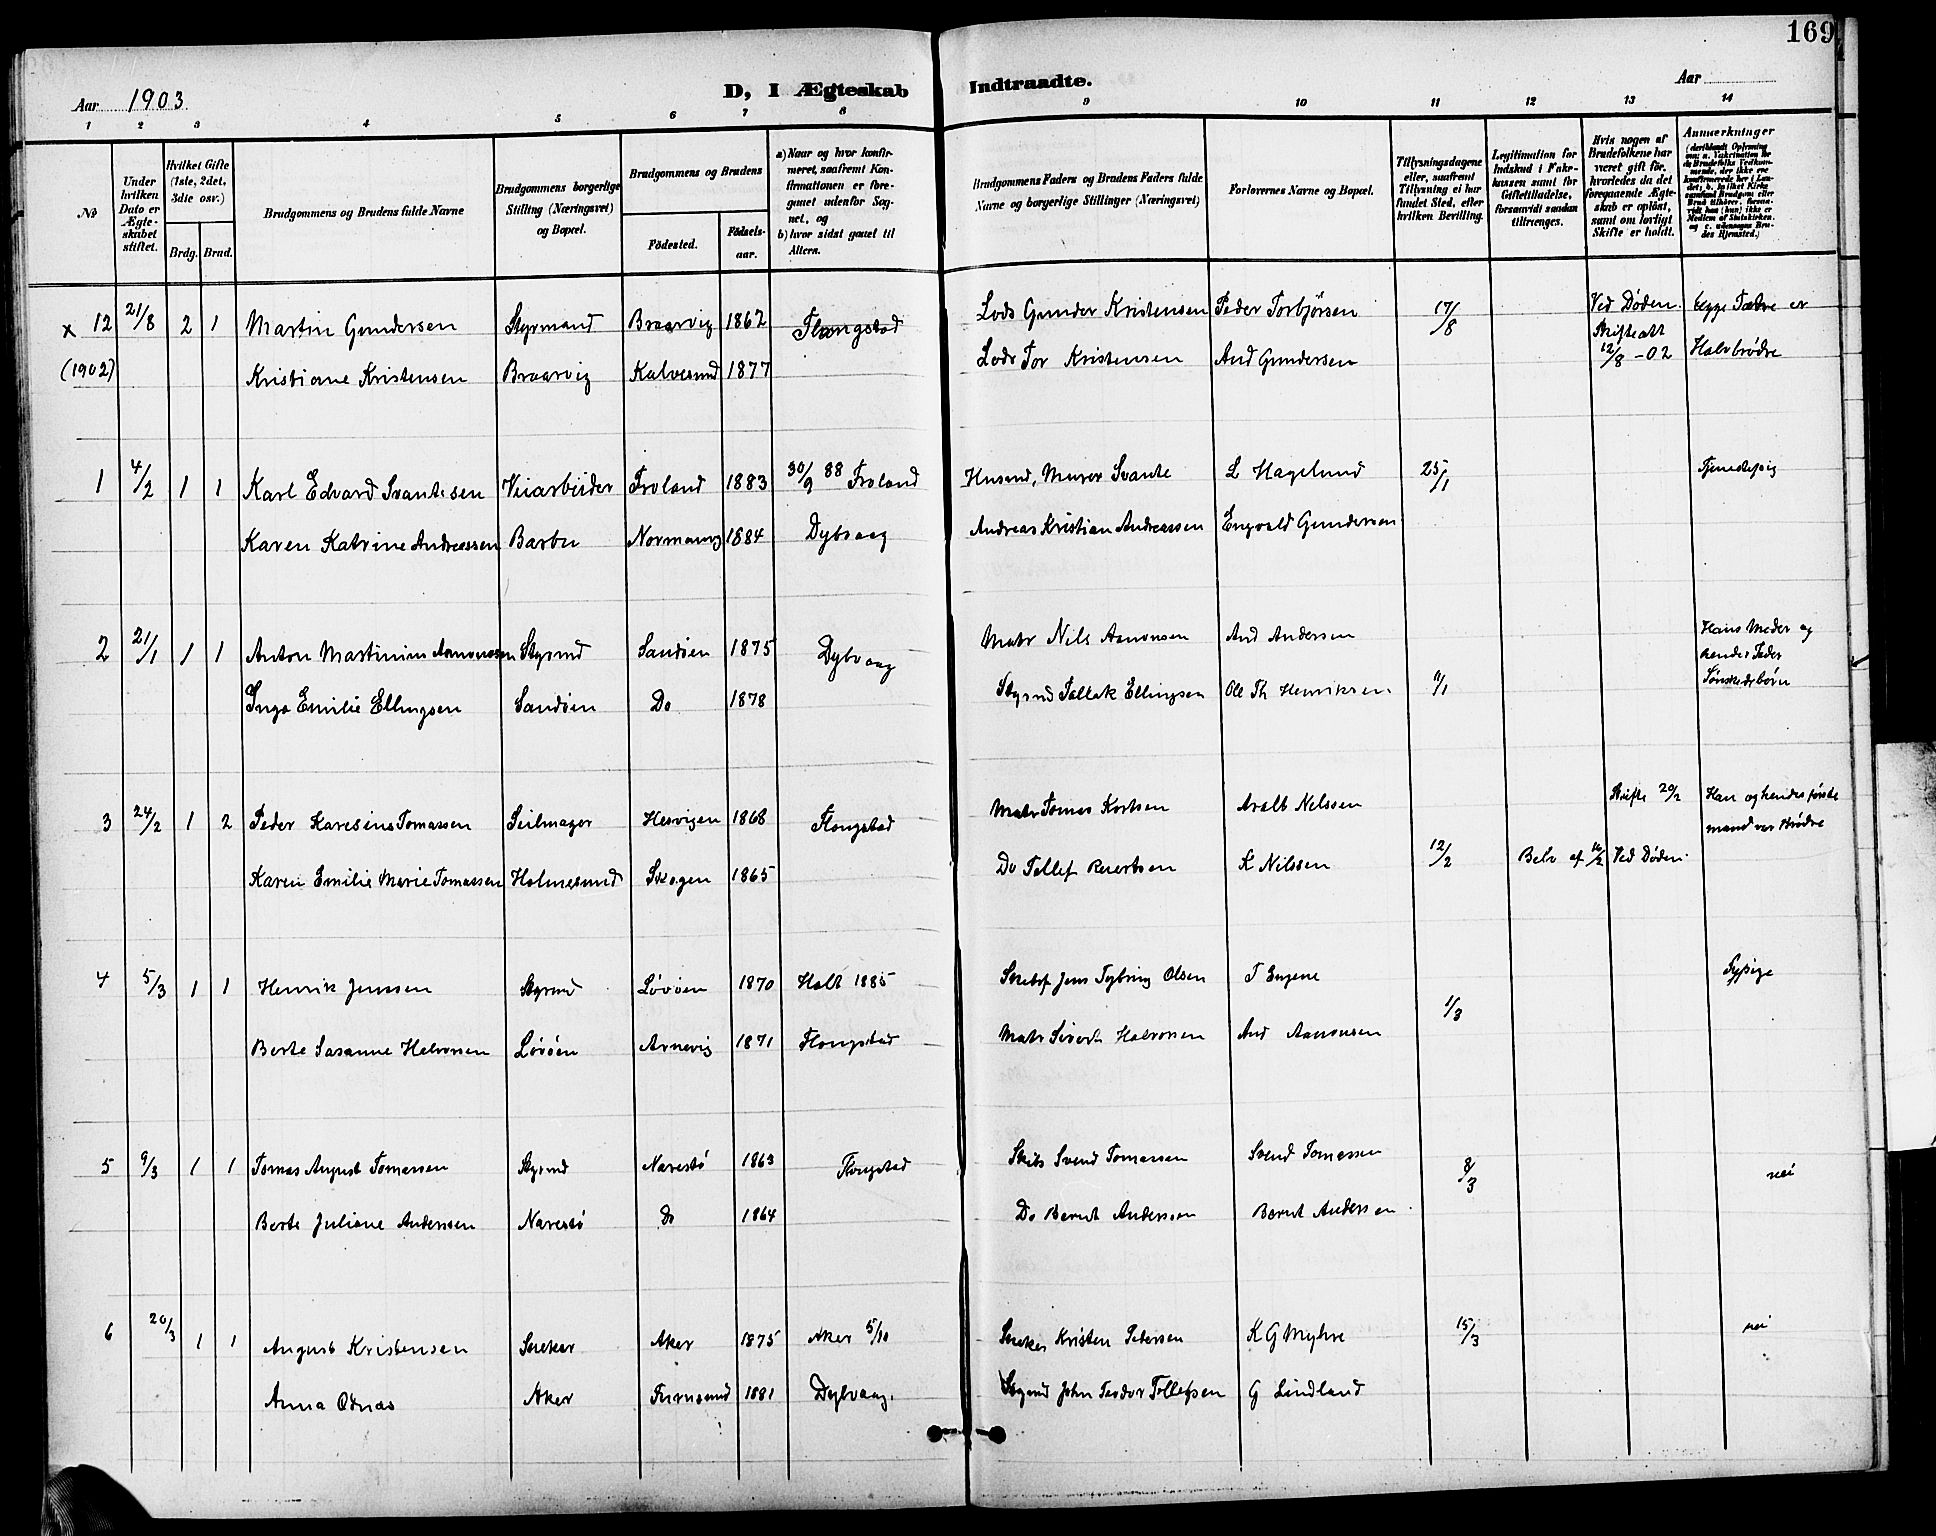 169
Aar 1903
D, I Ægteskab Indtraadte.
Aar
1 2 3 4 5 6 7 8 9 10 11 12 13 14
No
Under hvilken Dato er Ægteskabet stiftet.
Hvilket Gifte (1ste, 2det, 3die osv.)
Brdg. Brud.
Brudgommens og Brudens fulde Navne
Brudgommens borgerlige Stilling (Næringsvei) og Bopæl.
Brudgommens og Brudens
Födested. Födselsaar.
a) Naar og hvor konfirmeret, saafremt Konfirmationen er foregaaet udenfor Sognet, og
b) hvor sidst gaaet til Alters.
Brudgommens Faders og Brudens Faders fulde Navne og borgerlige Stillinger (Næringsvei)
Forlovernes Navne og Bopæl.
Tillysningsdagene eller, saafremt Tillysning ei har fundet Sted, efter hvilken Bevilling.
Legitimation for Indskud i Enkekassen samt for Giftetilladelse, forsaavidt saadan tiltrænges.
Hvis nogen af Brudefolkene har været gift før, hvorledes da det foregaaende Ægteskab er opløst, samt om lovligt Skifte er holdt.
Anmærkninger
x 12 21/8 2 1 Martin Gundersen Styrmand Braarvig 1862 Flangstad Lods Gunder Kristensen Peder Torbjørsen 17/8 Ved Døden. Skifteatt 12/8 -02 begge Fædre er Halvbrødre
(1902) Kristiane Kristensen Braarvig Kalvesund 1877 Lods Tor Kristensen And Gundersen
1 4/2 1 1 Karl Edvard Svantesen Veiarbeider Froland 1883 30/9 88 Froland Husmd, Murer Svante L Hagelund 25/1 Tjenestepig
Karen Katrine Andreassen Barbu Normanvig 1884 Dybvaag Andreas Kristian Andreassen Engvald Gundersen
2 21/1 1 1 Anton Martinius Aanonssen Styrmd Sandøen 1875 Dybvaag Matr Nils Aanonsen And Andersen Hans Moder og hendes Fader Søskendebørn
Inga Emilie Ellingsen Sandøen Do 1878 Styrmd Tallak Ellingsen Ole Th Henriksen 11/1
3 24/2 1 2 Peder Karesius Tomassen Seilmager Hesvigen 1868 Flangstad Matr Tomas Kortsen Aralt Nilssen Skifte 20/2 Han og hendes første mand var Brødre
Karen Emilie Marie Tomassen Holmesund Skogen 1865 Do Tellef Reiertsen K Nilssen 12/2 Belv af 16/2 Ved Døden.
4 5/3 1 1 Henrik Jenssen Styrmd Løvøen 1870 Holt 1885 Skibsf Jens Tybring Olsen T Eugene Sypige
Berte Susanne Halvorsen Løvøen Arnevig 1871 Flangstad Matr Sivert Halvorsen And Aanonsen 1/3
5 9/3 1 1 Tomas August Tomassen Styrmd Narestø 1863 Flangstad Skibs Svend Tomassen Svend Tomessen 8/3 nei
Berte Juliane Andersen Narestø Do 1864 Do Bernt Anderssen Bernt Andersen
6 20/3 1 1 August Kristensen Snekker Aker 1875 Aker 5/10 Snekker Kristen Pedersen K G Myhre 15/3 nei
Anna Odnas Aker Furusund 1881 Dybvaag. Styrmd John Teodor Tellefsen G Lindland